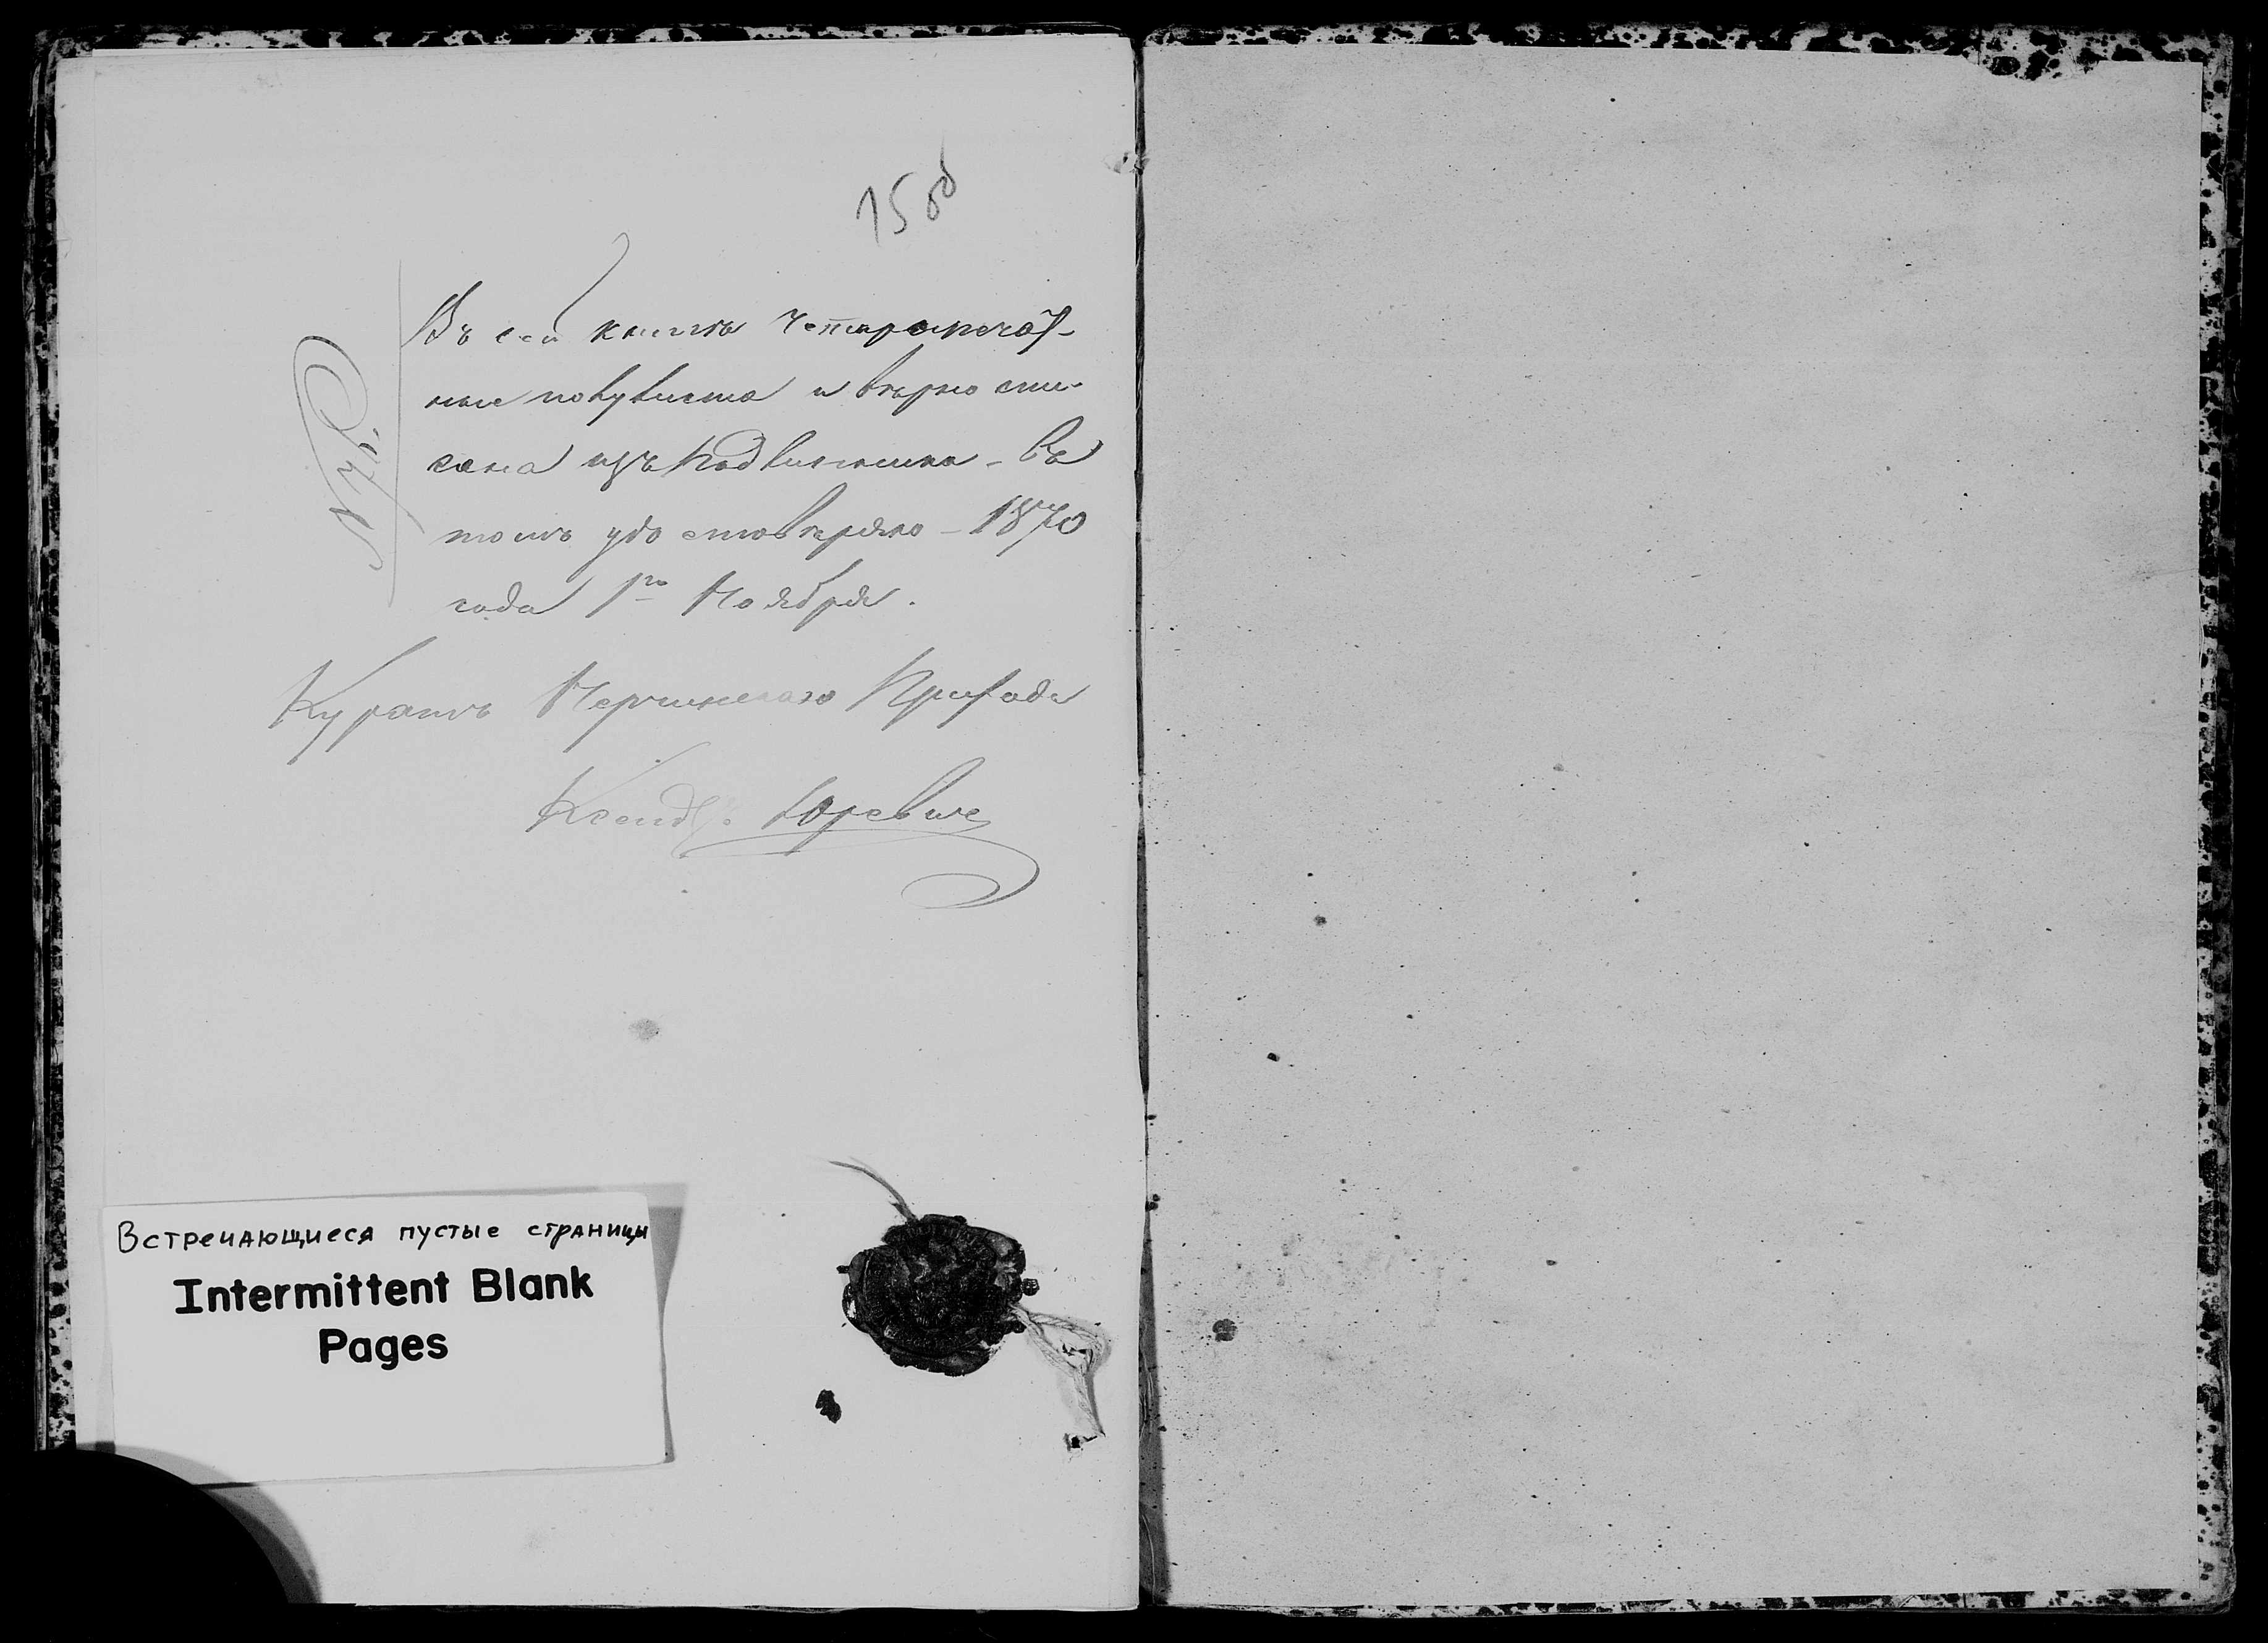 15 об
Въ сей книгѣ четыре печат-
ные полулиста и вѣрно спи-
сана изъ подлинника - въ
томъ удостовѣряю - 1870
года 1го Ноября.
Куратъ Нерчинскаго Прихода
Ксендзъ Юревичъ
Встречающиеся пустые страницы
Intermittent Blank
Pages